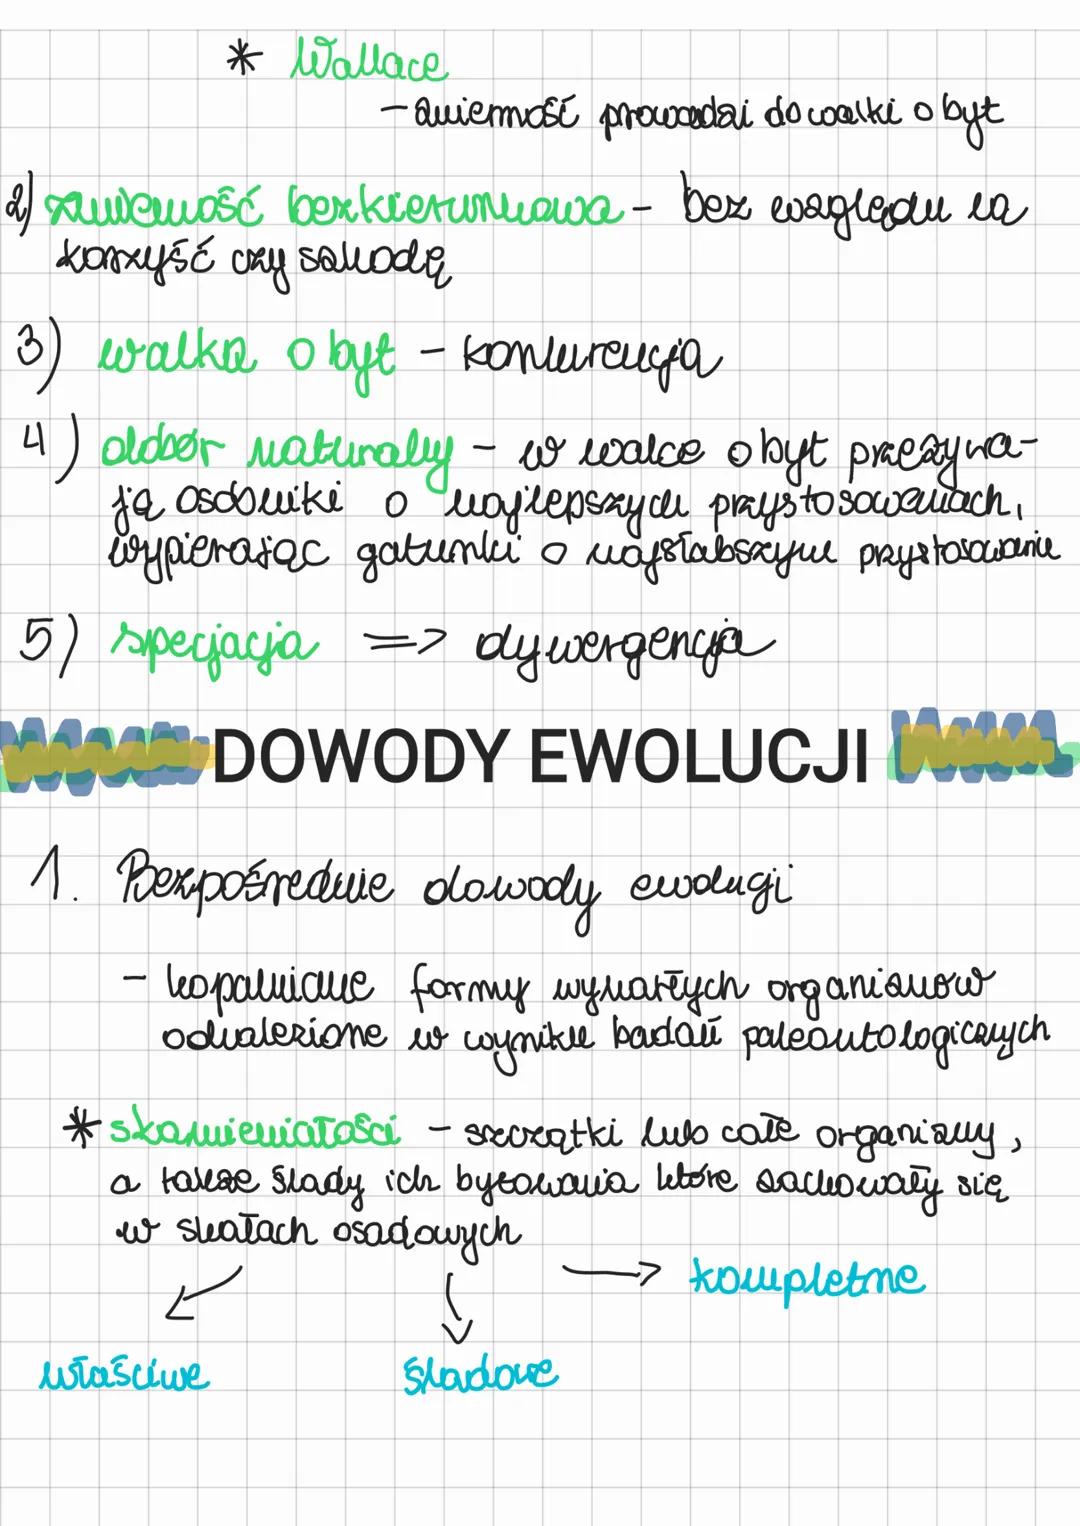 * Wallace
- zmienność prowadzi do walki o byt
2) zmienność bezkierunkowa - bez względu na
korzyść czy szkodę
3) walka o byt - konkurencja
4) dobór naturalny - w walce o byt przeżywa-
ją osobniki o najlepszych przystosowaniach,
wypierając gatunki o najsłabszym przystosowanie
5) specjacja => dywergencja
DOWODY EWOLUCJI
1. Bezpośrednie dowody ewolucji
- kopalniane formy wymarłych organizmów
odnalezione w wyniku badań paleontologicznych
* skamieniałości - szczątki lub całe organizmy,
a także ślady ich bytowania które zachowały się
w skałach osadowych
kompletne
właściwe śladowe